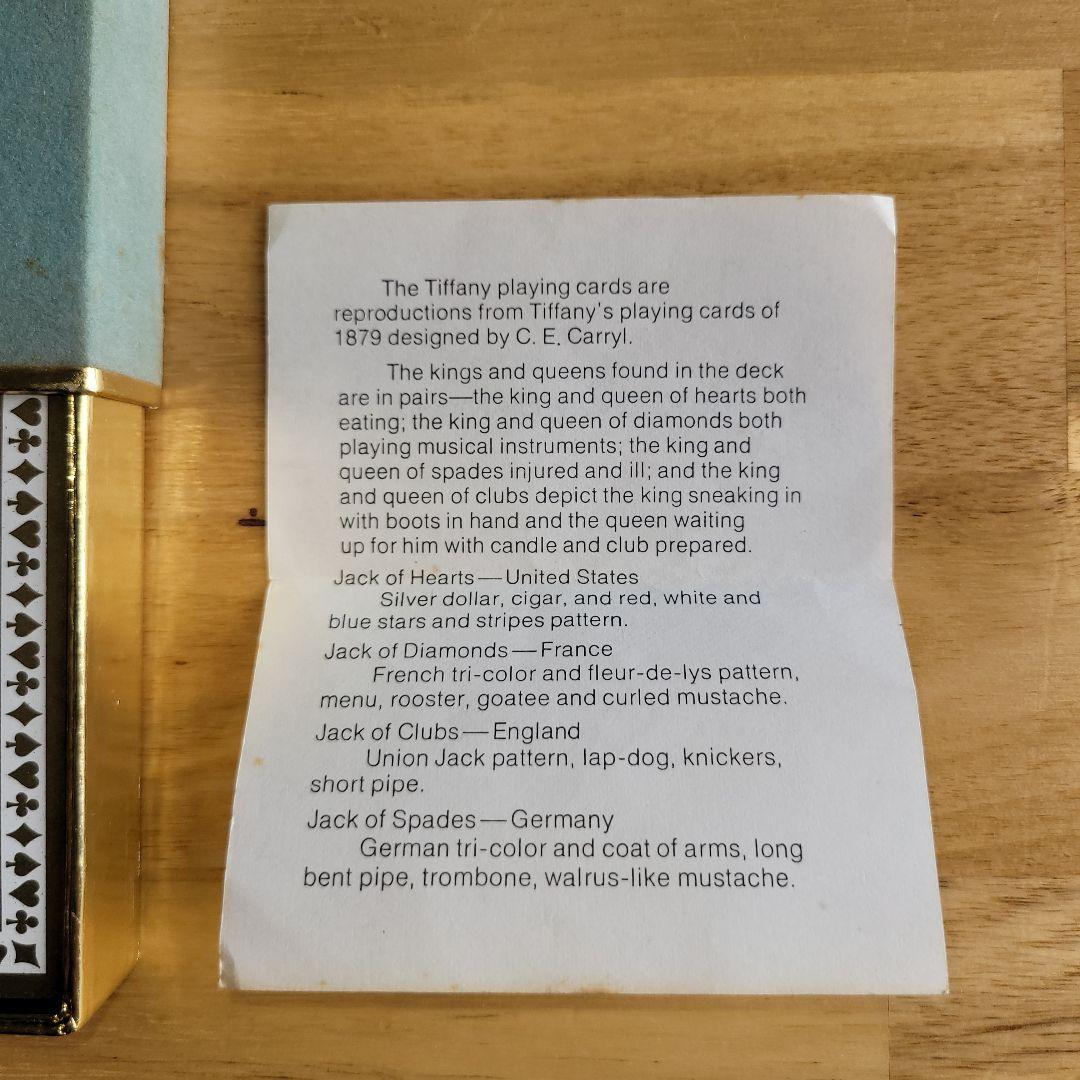 The Tiffany playing cards are
reproductions from Tiffany's playing cards of
1879 designed by C. E. Carryl.
The kings and queens found in the deck
are in pairs—the king and queen of hearts both
eating; the king and queen of diamonds both
playing musical instruments; the king and
queen of spades injured and ill; and the king
and queen of clubs depict the king sneaking in
with boots in hand and the queen waiting
up for him with candle and club prepared.
Jack of Hearts—United States
Silver dollar, cigar, and red, white and
blue stars and stripes pattern.
Jack of Diamonds—France
French tri-color and fleur-de-lys pattern,
menu, rooster, goatee and curled mustache.
Jack of Clubs—England
Union Jack pattern, lap-dog, knickers,
short pipe.
Jack of Spades—Germany
German tri-color and coat of arms, long
bent pipe, trombone, walrus-like mustache.